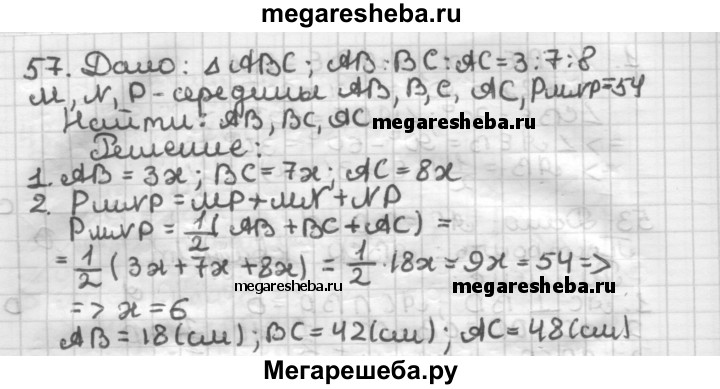 megaresheba.ru
57. Дано: Δ ABC; AB:BC:AC=3:7:8
M, N, P - середины AB, B, C, AC, Pмnp=54
Найти: AB, BC, AC
megaresheba.ru
Решение:
1. AB = 3x; BC = 7x; AC = 8x
2. PMNP = MP+MN+NP
PMNP = 1/2 (AB+BC+AC) =
= 1/2 (3x+7x+8x) = 1/2 · 18x = 9x = 54 =>
megaresheba.ru
=> x = 6
AB = 18 (см); BC = 42 (см); AC = 48 (см)
Мегарешеба.ру